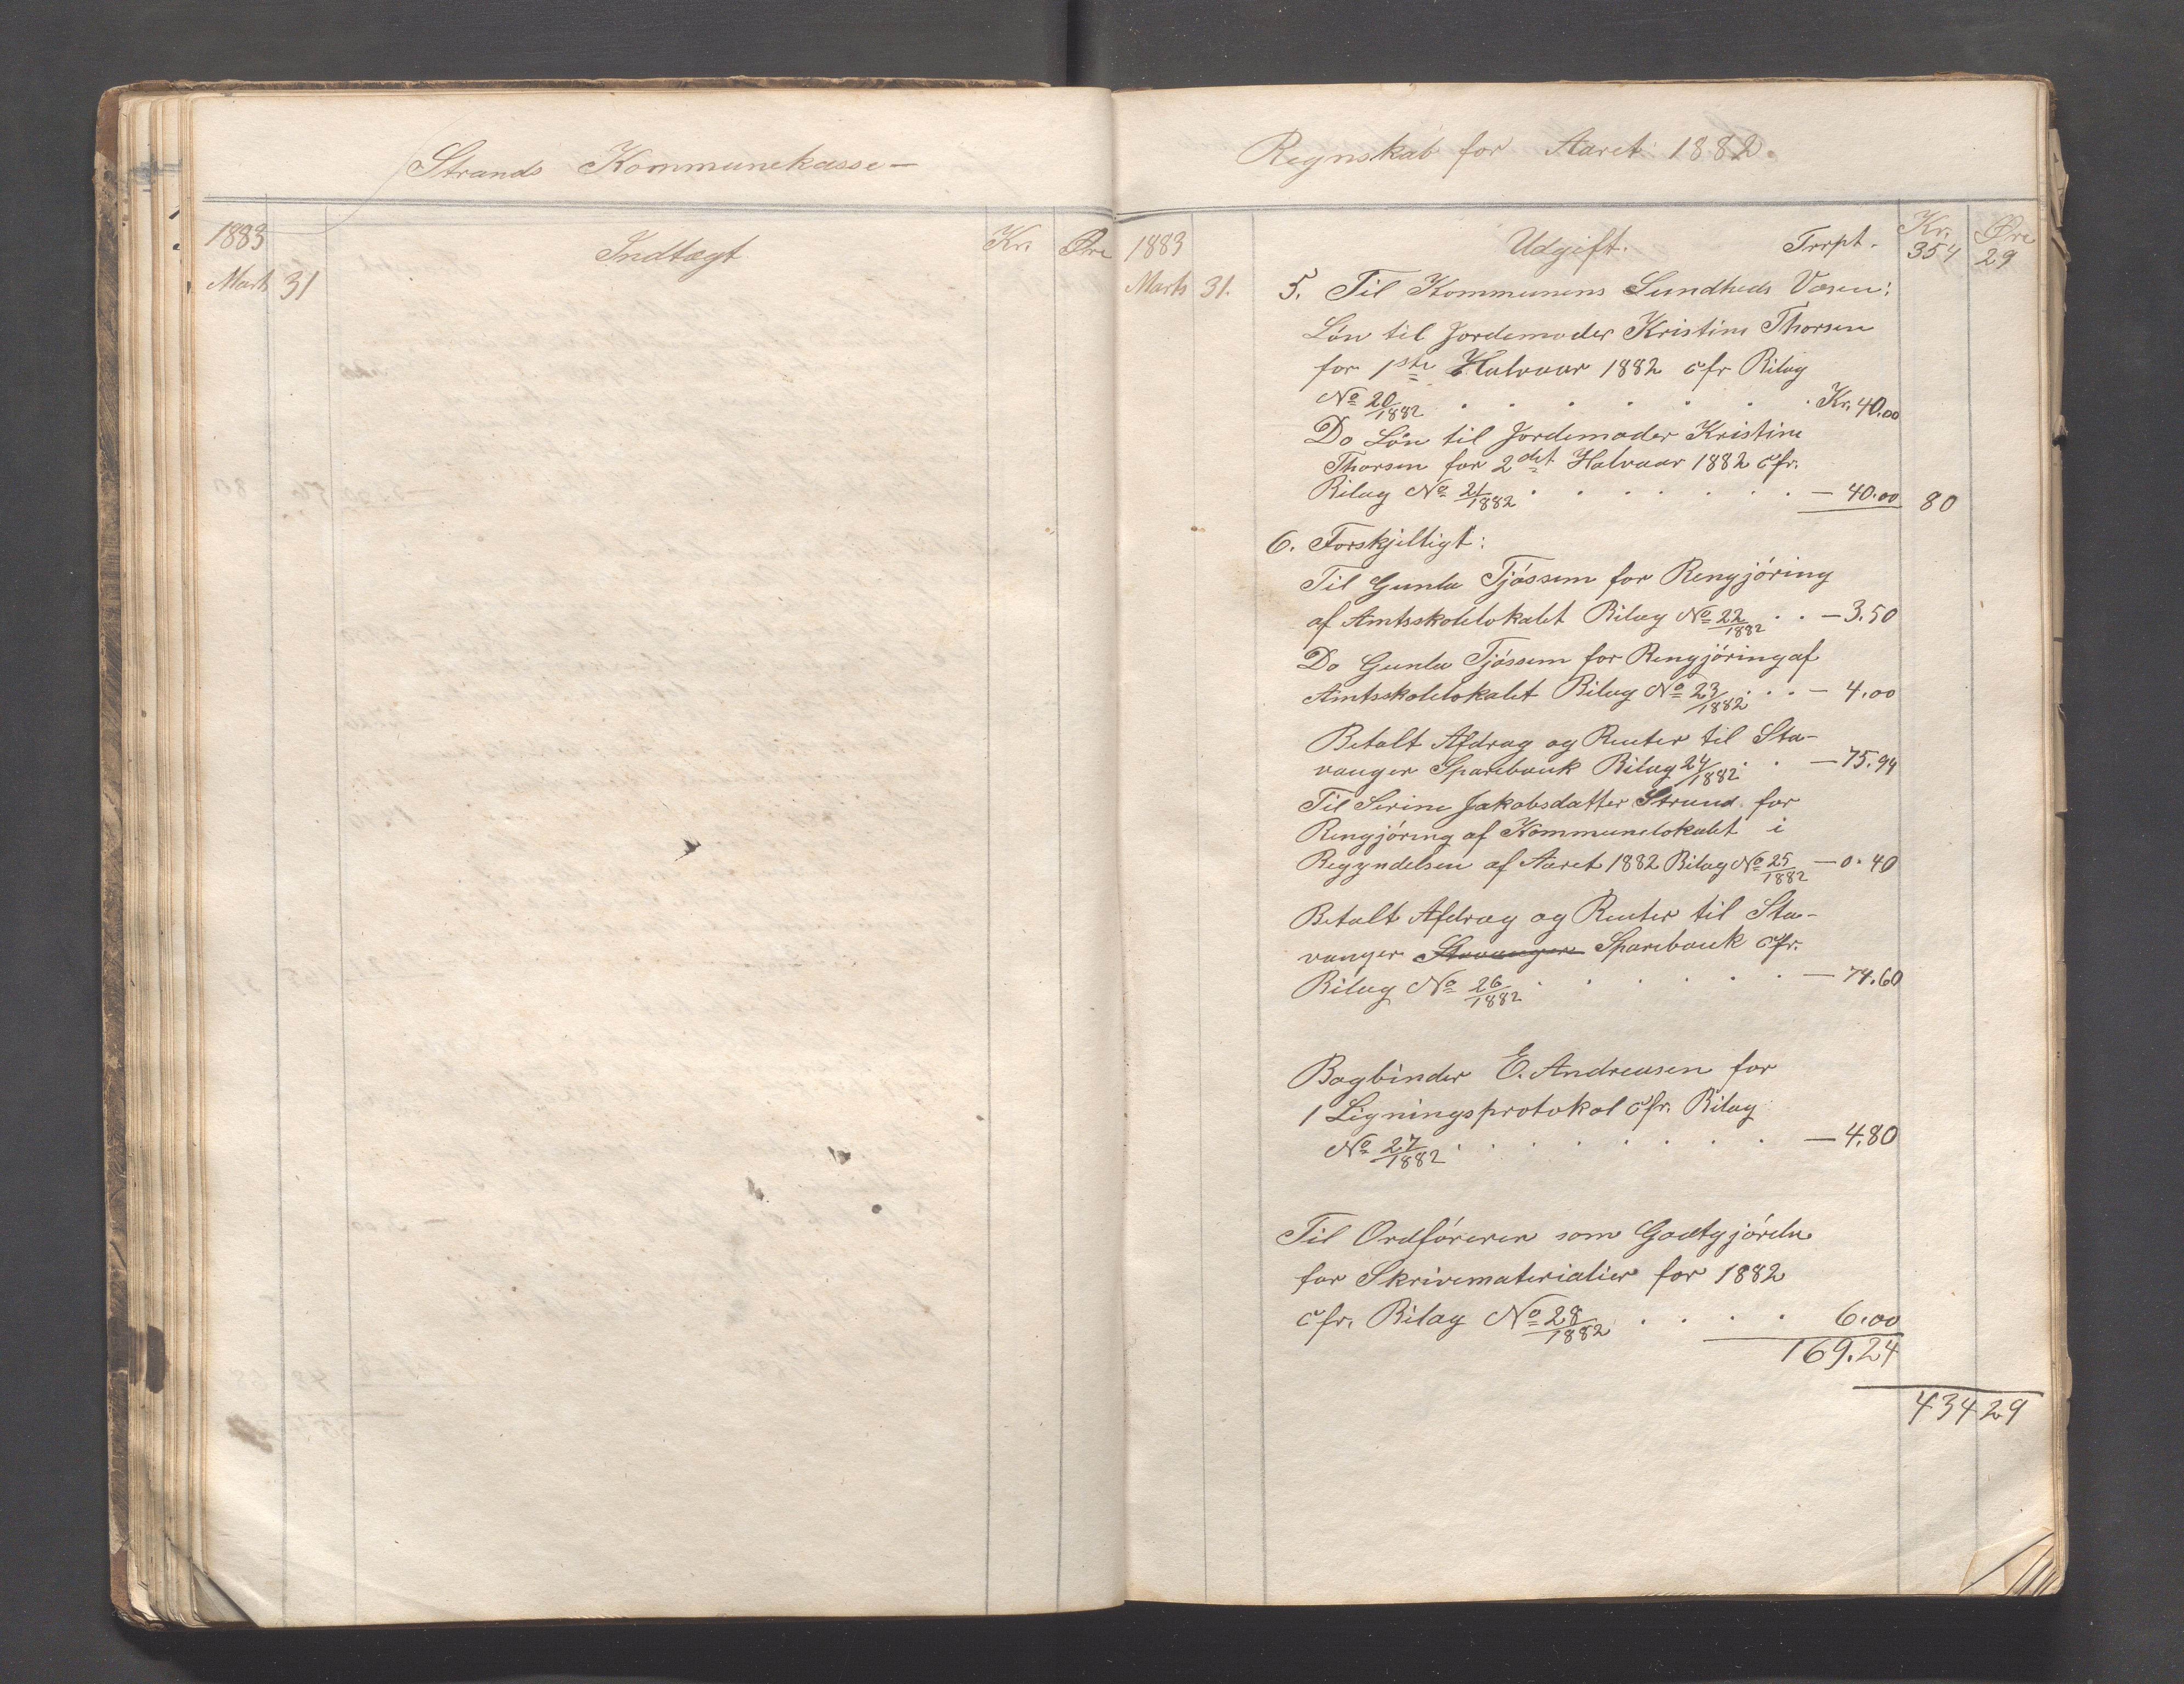 Strands Kommunekasse –
1883
Indtægt
Kr.
Øre
Marts 31
Regnskab for Aaret 1882.
1883
Udgift.
Trpt.
Kr. 354
Øre 29
Marts 31.
5. Til Kommunens Sundheds Væsen:
Løn til Jordemoder Kristine Thorsen
for 1ste Halvaar 1882 cfr Bilag
No 20/1882 . . . . . . . Kr. 40.00
Do Løn til Jordemoder Kristine
Thorsen for 2det Halvaar 1882 cfr.
Bilag No 21/1882 . . . . . . . – 40.00 80
6. Forskjelligt:
Til Gunla Tjøssem for Rengjøring
af Amtsskolelokalet Bilag No 22/1882 . . – 3.50
Do Gunla Tjøssem for Rengjøring af
Amtsskolelokalet Bilag No 23/1882 . . . – 4.00
Betalt Afdrag og Renter til Sta-
vanger Sparebank Bilag 24/1882 . . – 75.94
Til Serine Jakobsdatter Strand for
Rengjøring af Kommunelokalet i
Begyndelsen af Aaret 1882 Bilag No 25/1882 – 0.40
Betalt Afdrag og Renter til Sta-
vanger Stavanger Sparebank cfr.
Bilag No 26/1882 . . . . . . – 74.60
Bogbinder E. Andreasen for
1 Ligningsprotokol cfr. Bilag
No 27/1882 . . . . . . . . – 4.80
Til Ordføreren som Godtgjørelse
for Skrivematerialier for 1882
cfr. Bilag No 28/1882 . . . . 6.00
169.24
434 29